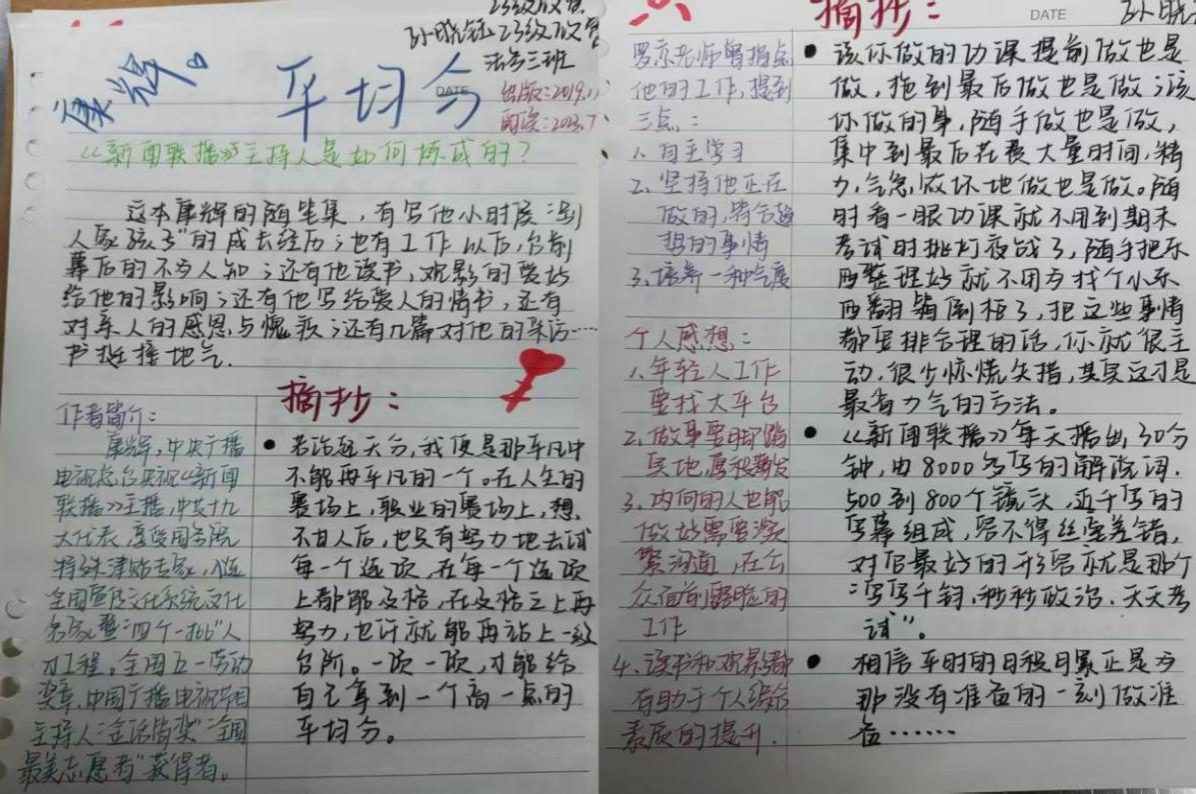 23级改宫
孙晓钰 23级改宫
法务三班
康辉。
平均分
DATE
出版:2019.11
阅读:2023.7
《新闻联播》主持人是如何炼成的?
这本康辉的随笔集,有写他小时候“别
人家孩子”的成长经历;也有工作以后,台前
幕后的不为人知;还有他读书,观影的喜好
给他的影响;还有他写给爱人的情书,还有
对亲人的感恩与愧疚;还有几篇对他的采访……
书挺接地气.
摘抄:
作者简介:
康辉,中央广播
电视总台央视《新闻
联播》主播,中共十九
大代表,享受国务院
特殊津贴专家,入选
全国宣传文化系统文化
名家暨“四个一批”人
才工程。全国五一劳动
奖章,中国广播电视节目
主持人“金话筒奖”“全国
最美志愿者”获得者。
● 若论起天分,我便是那平凡中
不能再平凡的一个。在人生的
赛场上,职业的赛场上,想
不甘人后,也只有努力地去试
每一个选项,在每一个选项
上都能及格,在及格之上再
努力,也许就能再站上一级
台阶。一次一次,才能给
自己拿到一个高一点的
平均分。
摘抄:
DATE
孙晓
罗京老师曾指点
他的工作,提到
三点:
1、自主学习
2、坚持他正在
做的,符合理
想的事情
3、培养一种气度
个人感想:
1、年轻人工作
要找大平台
2、做事要脚踏
实地,厚积薄发
3、内向的人也能
做好需要频
繁沟通,在公
众面前露脸的
工作
4、读书和观影都
有助于个人综合
素质的提升.
● 该你做的功课提前做也是
做,拖到最后做也是做;该
你做的事,随手做也是做,
集中到最后花费大量时间,精
力,气急败坏地做也是做。随
时看一眼功课就不用到期末
考试时挑灯夜战了,随手把东
西整理好就不用为找个小东
西翻箱倒柜了,把这些事情
都安排合理的话,你就很主
动,很少惊慌失措,其实这才是
最省力气的方法。
● 《新闻联播》每天播出30分
钟,由8000多字的解说词.
500到800个镜头,近千字的
字幕组成,容不得丝毫差错,
对它最好的形容就是那个
“字字千钧,秒秒政治.天天考
试”。
● 相信平时的日积月累正是为
那没有准备的一刻做准
备……